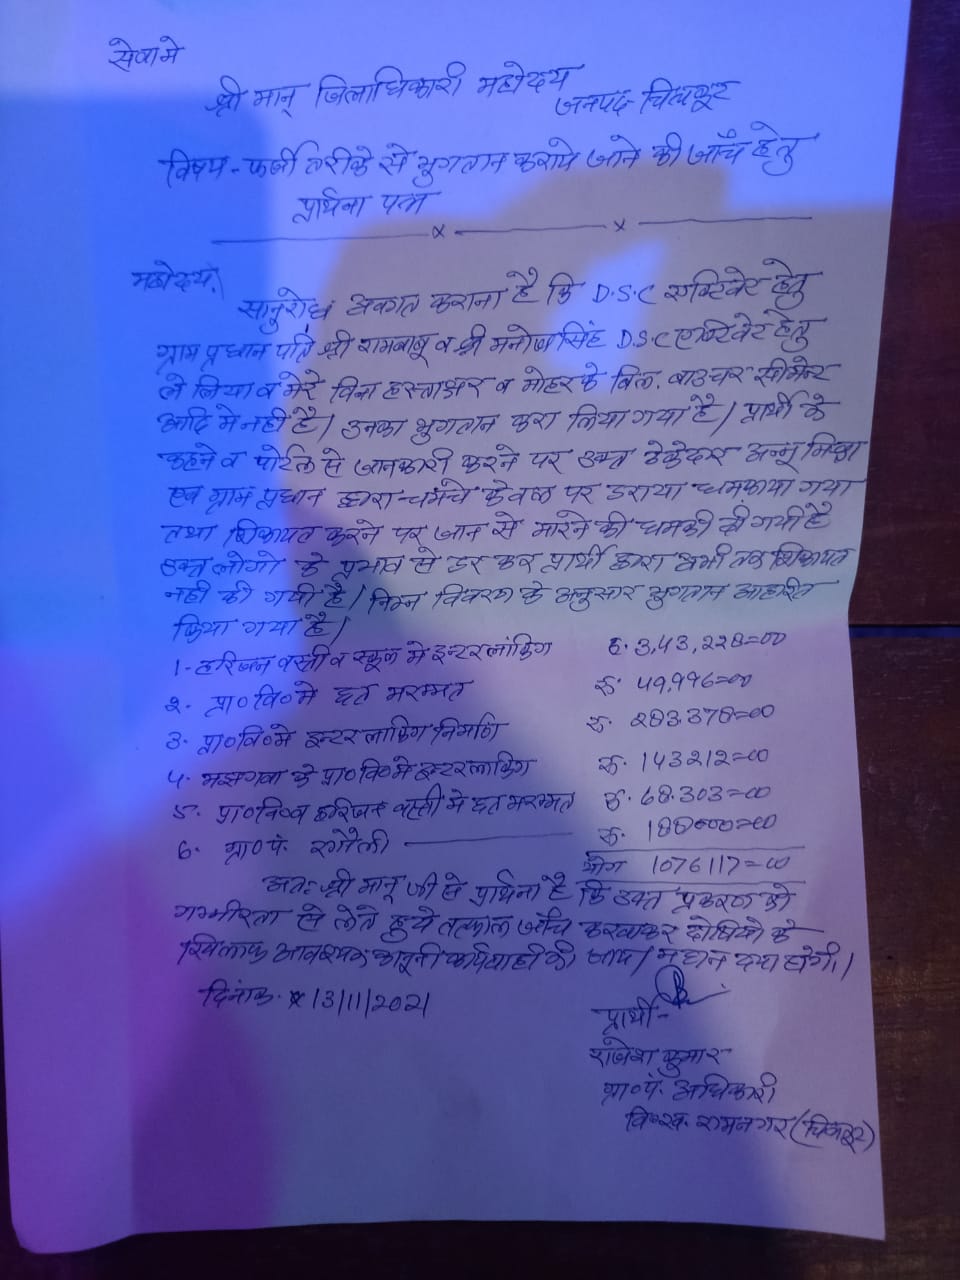 सेवामे
श्री मान् जिलाधिकारी महोदय
जनपद-चित्रकूट
विषय- फर्जी तरीके से भुगतान कराये जाने की जाँच हेतु
प्रार्थना पत्र
महोदय,
सानुरोध अवगत कराना है कि D.S.C एक्टिवेट हेतु
ग्राम प्रधान पति श्री रामबाबू व श्री मनोज सिंह D.S.C एक्टिवेट हेतु
ले लिया व मेरे बिना हस्ताक्षर व मोहर के बिल. बाउचर सीमेन्ट
आदि मे नही है। उनका भुगतान करा लिया गया है। प्रार्थी के
कहने व पोर्टल से जानकारी करने पर उक्त ठेकेदार अन्नू मिश्रा
एवं ग्राम प्रधान द्वारा के बल पर डराया धमकाया गया
तथा शिकायत करने पर जान से मारने की धमकी दी गयी है
उक्त लोगो के प्रभाव से डर कर प्रार्थी द्वारा अभी तक शिकायत
नही की गयी है। निम्न विवरण के अनुसार भुगतान आहरित
किया गया है।
1- हरिजन वस्ती व स्कूल मे इन्टरलांकिग रु. 3,43,228=00
2. प्रा०वि०मे छत मरम्मत रु. 49,996=00
3. प्रा०वि०मे इन्टरलाकिग निर्माण रु. 283.378=00
4. के प्रा०वि०मे इन्टरलाकिग रु. 143212=00
5. प्रा०वि०व हरिजन वस्ती मे छत मरम्मत रु. 68.303=00
6. ग्रा०पं. रगौली रु. 188000=00
योग 1076117=00
अतः श्री मान् जी से प्रार्थना है कि उक्त प्रकरण को
गम्भीरता से लेते हुये तत्काल जाँच करवाकर दोषियो के
खिलाफ आवश्यक कानूनी कार्यवाही की जाय। महान दया होगी।
दिनांक. 13/11/2021
प्रार्थी-
राजेश कुमार
ग्रा०पं. अधिकारी
वि०ख. रामनगर (चित्रकूट)